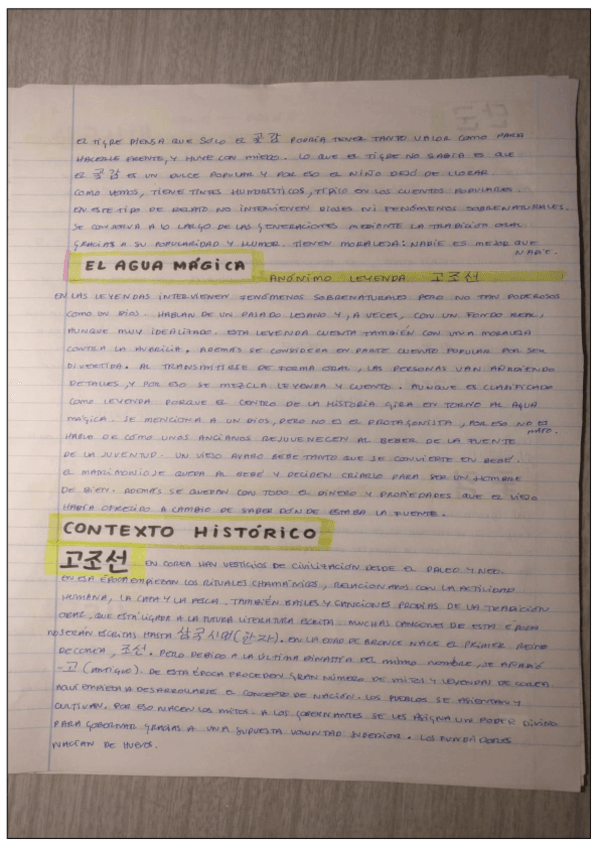 EL TIGRE PIENSA QUE SOLO EL 곶감 PODRÍA TENER TANTO VALOR COMO PARA
HACERLE FRENTE, Y HUYE CON MIEDO. LO QUE EL TIGRE NO SABÍA ES QUE
EL 곶감 ES UN DULCE POPULAR Y POR ESO EL NIÑO DEJÓ DE LLORAR.
COMO VEMOS, TIENE TINTES HUMORÍSTICOS, TÍPICO EN LOS CUENTOS POPULARES.
EN ESTE TIPO DE RELATO NO INTERVIENEN DIOSES NI FENÓMENOS SOBRENATURALES.
SE CONSERVA A LO LARGO DE LAS GENERACIONES MEDIANTE LA TRADICIÓN ORAL
GRACIAS A SU POPULARIDAD Y HUMOR. TIENEN MORALEJA: NADIE ES MEJOR QUE
NADIE.
EL AGUA MÁGICA ANÓNIMO LEYENDA 고조선
EN LAS LEYENDAS INTERVIENEN FENÓMENOS SOBRENATURALES PERO NO TAN PODEROSOS
COMO UN DIOS. HABLAN DE UN PASADO LEJANO Y, A VECES, CON UN FONDO REAL,
AUNQUE MUY IDEALIZADO. ESTA LEYENDA CUENTA TAMBIÉN CON UNA MORALEJA
CONTRA LA AVARICIA. ADEMÁS SE CONSIDERA EN PARTE CUENTO POPULAR POR SER
DIVERTIDA. AL TRANSMITIRSE DE FORMA ORAL, LAS PERSONAS VAN AÑADIENDO
DETALLES, Y POR ESO SE MEZCLA LEYENDA Y CUENTO. AUNQUE ES CLASIFICADO
COMO LEYENDA PORQUE EL CENTRO DE LA HISTORIA GIRA EN TORNO AL AGUA
MÁGICA. SE MENCIONA A UN DIOS, PERO NO ES EL PROTAGONISTA, POR ESO NO ES
MITO.
HABLA DE CÓMO UNOS ANCIANOS REJUVENECEN AL BEBER DE LA FUENTE
DE LA JUVENTUD. UN VIEJO AVARO BEBE TANTO QUE SE CONVIERTE EN BEBÉ.
EL MATRIMONIO SE QUEDA AL BEBÉ Y DECIDEN CRIARLO PARA SER UN HOMBRE
DE BIEN. ADEMÁS SE QUEDAN CON TODO EL DINERO Y PROPIEDADES QUE EL VIEJO
HABÍA OFRECIDO A CAMBIO DE SABER DÓNDE ESTABA LA FUENTE.
CONTEXTO HISTÓRICO
고조선 EN COREA HAY VESTIGIOS DE CIVILIZACIÓN DESDE EL PALEO Y NEO.
EN ESA ÉPOCA EMPIEZAN LOS RITUALES CHAMÁNICOS, RELACIONADOS CON LA ACTIVIDAD
HUMANA, LA CAZA Y LA PESCA. TAMBIÉN BAILES Y CANCIONES PROPIAS DE LA TRADICIÓN
ORAL, QUE ESTÁ LIGADA A LA FUTURA LITERATURA ESCRITA. MUCHAS CANCIONES DE ESTA ÉPOCA
NO SERÁN ESCRITAS HASTA (한자). EN LA EDAD DE BRONCE NACE EL PRIMER REINO
DE COREA, 조선. PERO DEBIDO A LA ÚLTIMA DINASTÍA DEL MISMO NOMBRE, SE AÑADIÓ
-고 (ANTIGUO). DE ESTA ÉPOCA PROCEDEN GRAN NÚMERO DE MITOS Y LEYENDAS DE COREA.
AQUÍ EMPIEZA A DESARROLLARSE EL CONCEPTO DE NACIÓN. LOS PUEBLOS SE ASIENTAN Y
CULTIVAN. POR ESO NACEN LOS MITOS. A LOS GOBERNANTES SE LES ASIGNA UN PODER DIVINO
PARA GOBERNAR GRACIAS A UNA SUPUESTA VOLUNTAD SUPERIOR. LOS FUNDADORES
NACÍAN DE HUEVOS.